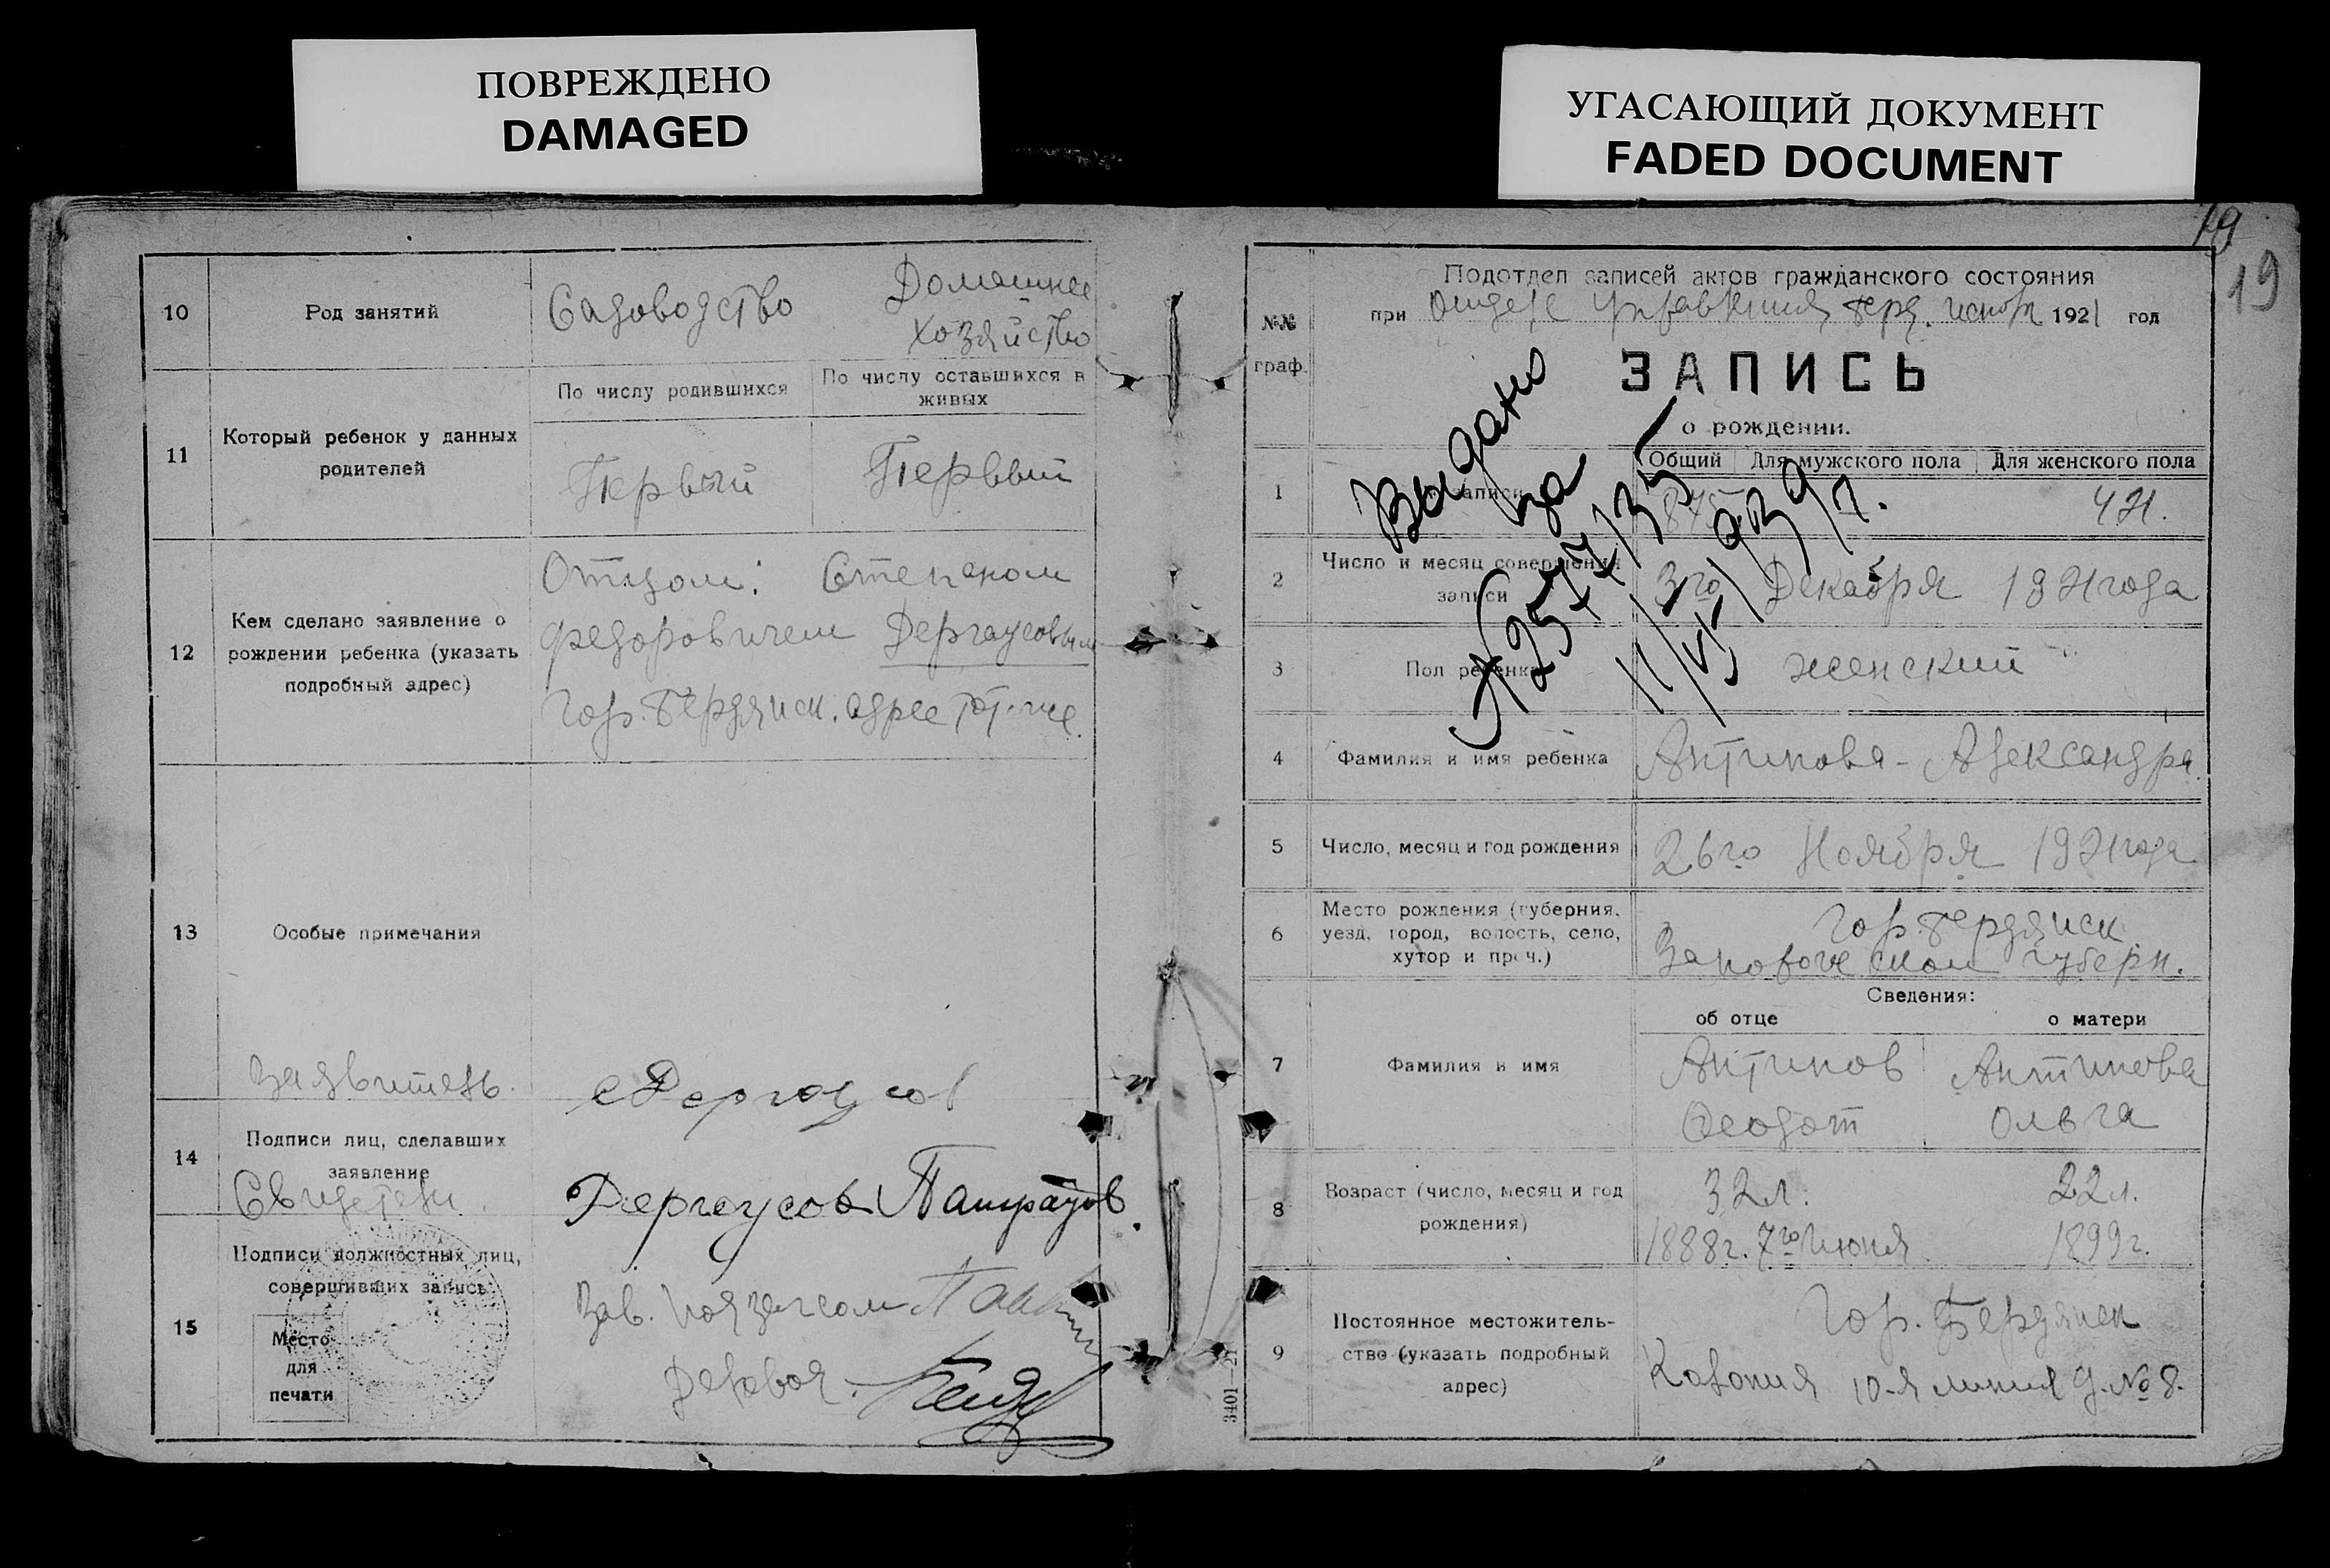 ПОВРЕЖДЕНО
DAMAGED
УГАСАЮЩИЙ ДОКУМЕНТ
FADED DOCUMENT
10
Род занятий
Садоводство
Домашнее
хозяйство
11
Который ребенок у данных
родителей
По числу родившихся
По числу оставшихся в
живых
Первый
Первый
12
Кем сделано заявление о
рождении ребенка (указать
подробный адрес)
Отцом: Степаном
Федоровичем Дергоусовым
Гор. Бердянск. адрес тот-же.
13
Особые примечания
Заявитель.
С Дергоусов
14
Подписи лиц, сделавших
заявление
Свидетели.
Дергоусов
15
Подписи должностных лиц,
совершивших запись
Место
для
печати
Зав.
Делов.
19
19
№№
граф.
Подотдел записей актов гражданского состояния
при Отделе Управления Берд. 1921 год
ЗАПИСЬ
о рождении.
Выдано
за
№ 2577/35
11/VI 1939 г.
Общий
Для мужского пола
Для женского пола
1
записи
875
421.
2
Число и месяц совершения
записи
3го Декабря 1921 года
3
Пол ребенка
женский
4
Фамилия и имя ребенка
Антипова - Александра.
5
Число, месяц и год рождения
26го Ноября 1921 года
6
Место рождения (губерния,
уезд, город, волость, село,
хутор и проч.)
Гор. Бердянск
губерн.
Сведения:
об отце
о матери
7
Фамилия и имя
Антипов
Феодот
Антипова
Ольга
8
Возраст (число, месяц и год
рождения)
32 л.
1888г. 7го Июня
22 л.
1899 г.
9
Постоянное местожитель-
ство (указать подробный
адрес)
Гор. Бердянск
Колония 10-я линия д. № 8.
3401—21